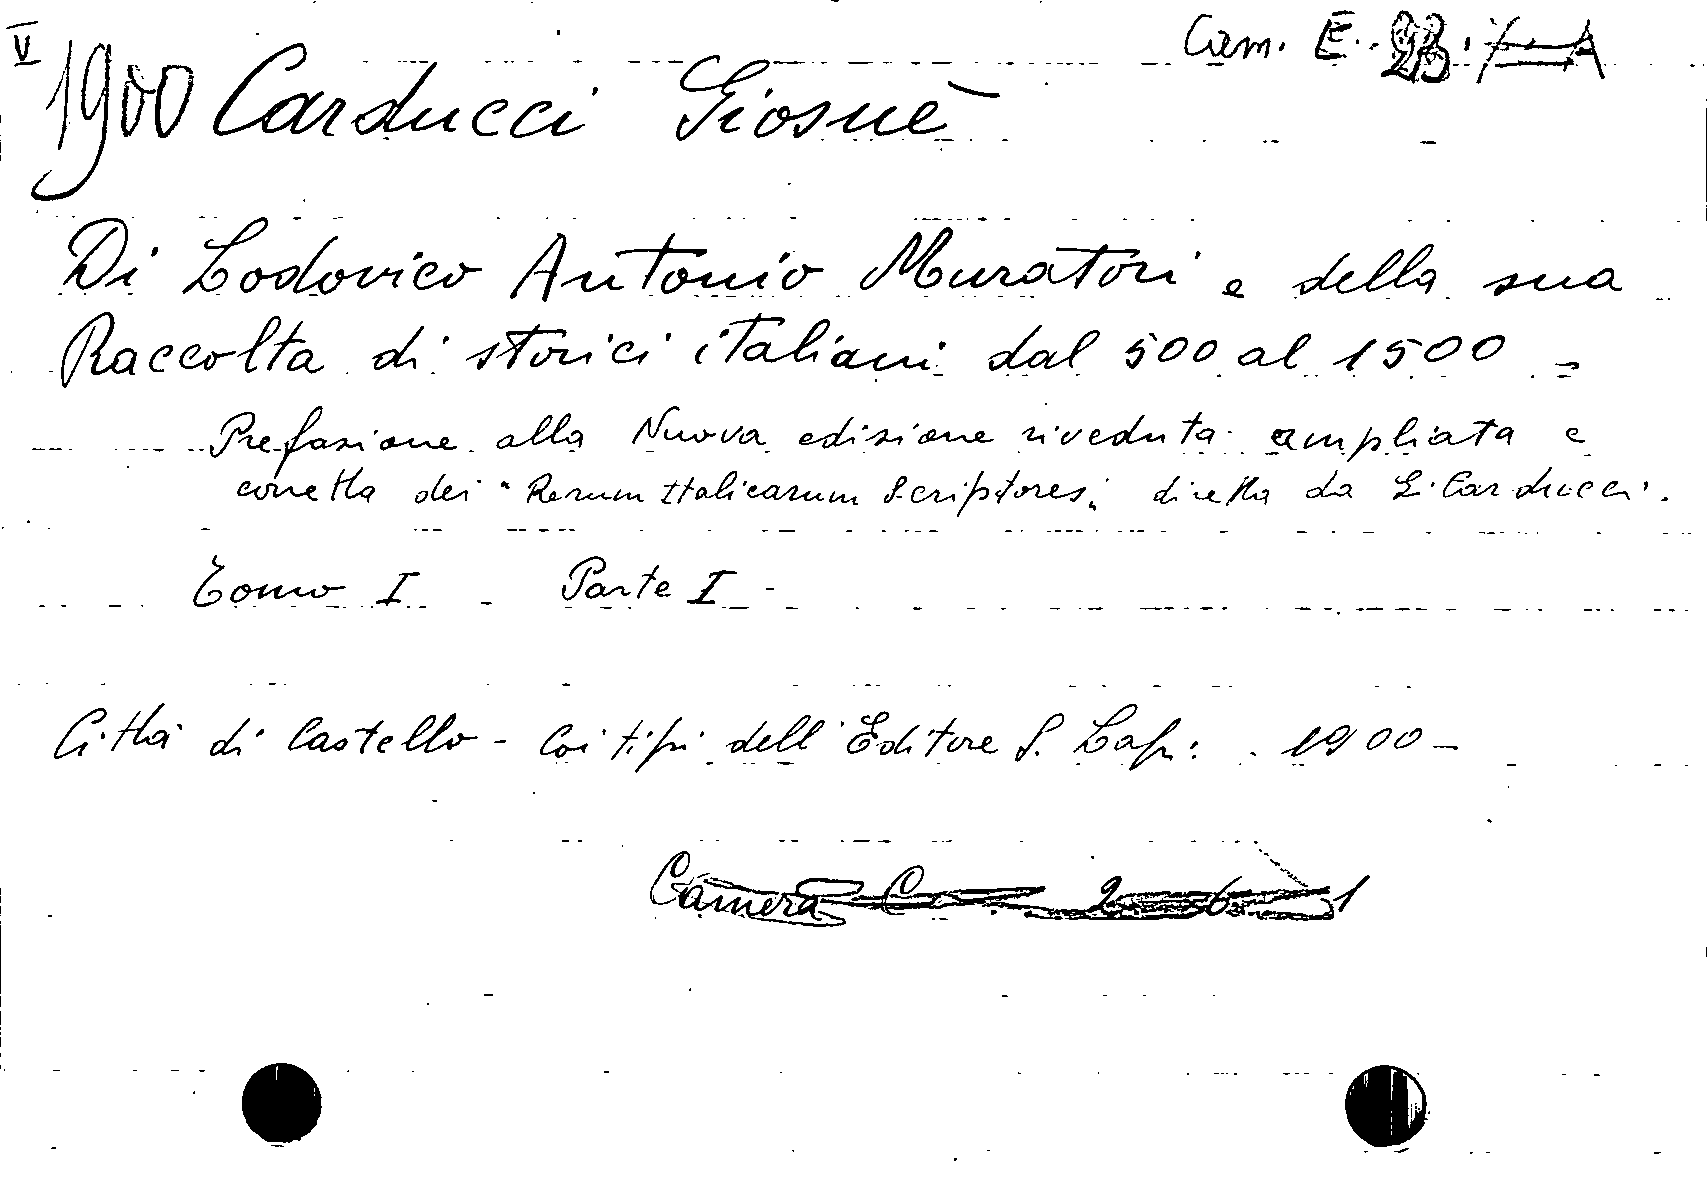 V
Cam. E. 23.
1900 Carducci Giosuè
Di Lodovico Antonio Muratori e della sua
Raccolta di storici italiani dal 500 al 1500 =
Prefazione alla Nuova edizione riveduta ampliata e
corretta dei "Rerum Italicarum Scriptores" diretta da G. Carducci.
Tomo I - Parte I -
Città di Castello - Coi tipi dell'Editore S. Lapi. 1900 -
Camera C. 2 6 1